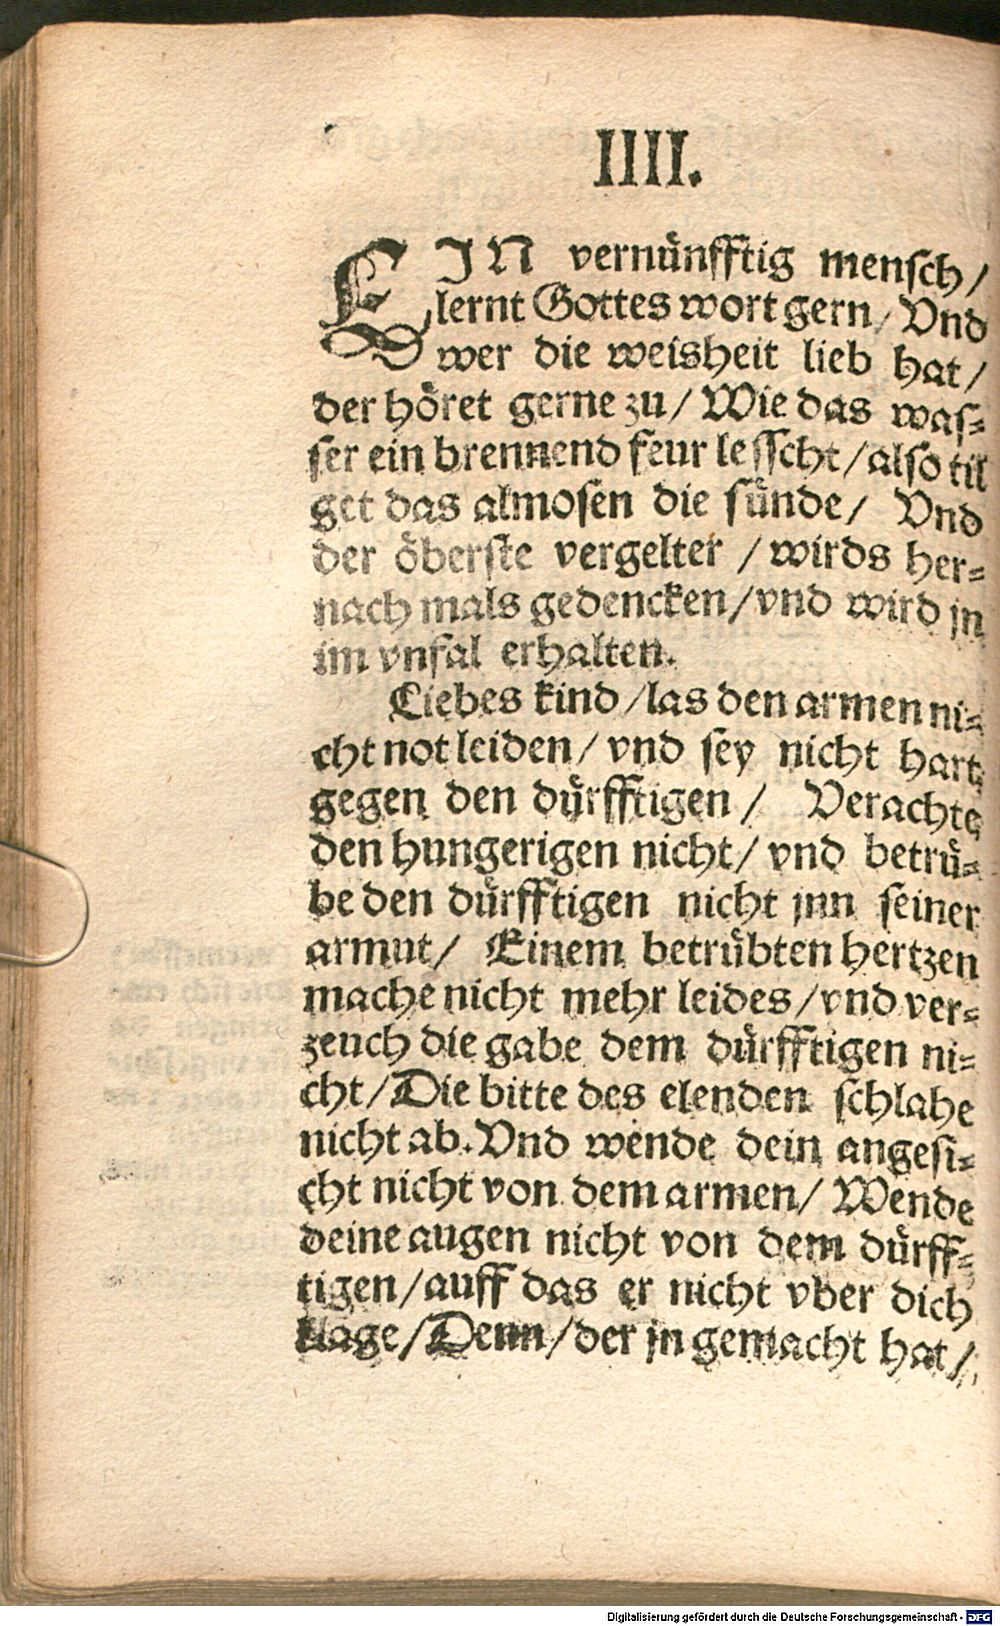 IIII.
EIN vernünfftig mensch/
lernt Gottes wort gern/ Vnd
wer die weisheit lieb hat/
der höret gerne zu/ Wie das was=
ser ein brennend feur lesscht/ also til
get das almosen die sünde/ Vnd
der öberste vergelter / wirds her=
nach mals gedencken/ vnd wird jn
im vnfal erhalten.
Liebes kind/ las den armen ni=
cht not leiden/ vnd sey nicht hart
gegen den dürfftigen / Verachte
den hungerigen nicht/ vnd betrü=
be den dürfftigen nicht jnn seiner
armut/ Einem betrübten hertzen
mache nicht mehr leides/ vnd ver=
zeuch die gabe dem dürfftigen ni=
cht/ Die bitte des elenden schlahe
nicht ab. Vnd wende dein angesi=
cht nicht von dem armen/ Wende
deine augen nicht von dem dürff=
tigen/ auff das er nicht vber dich
klage/ Denn/ der jn gemacht hat/
Digitalisierung gefördert durch die Deutsche Forschungsgemeinschaft - DFG